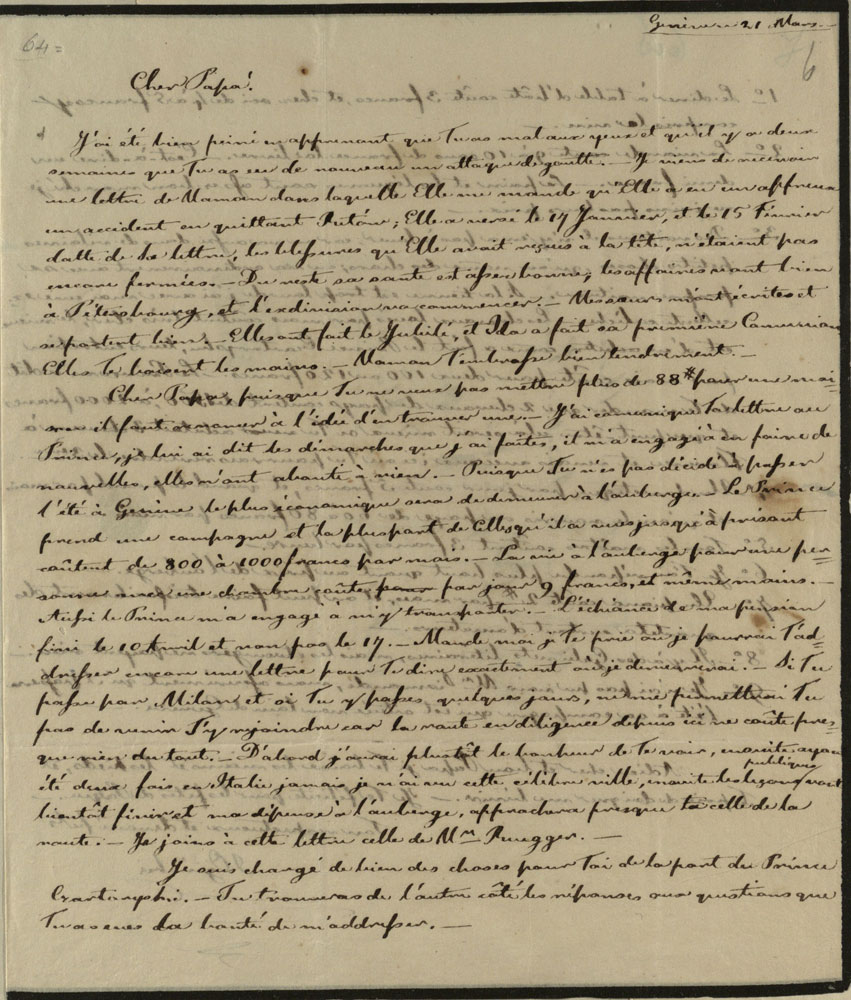 64 =
Genève 21 Mars.
6
Cher Papa!
J'ai été bien peiné en apprenant que Tu as mal aux yeux et qu'il y a deux
semaines que Tu as eu de nouveau un attaque de goutte. — Je viens de recevoir
une lettre de Maman dans laquelle Elle me mande qu'Elle a eu un affreux
un accident en quittant ; Elle a versé le 17 Janvier, et le 15 Février
datte de sa lettre, les blessures qu'Elle avait reçues à la tête, n'étaient pas
encore fermées. — Du reste sa santé est assez bonne; les affaires vont bien
à Pétersbourg, et l'exdivision va commencer. — Mes sœurs m'ont écrites et
se portent bien. — Elles ont fait le Jubilé, et Iza a fait sa première Comunion
Elles Te baisent les mains. — Maman T'embrasse bien tendrement. —
Cher Papa, puisque Tu ne veux pas mettre plus de 88 # pour une mai-
son il faut renoncer à l'idée d'en trouver une. — J'ai comuniqué Ta lettre au
Prince, je lui ai dit les démarches que j'ai faites, il m'a engagé à en faire de
nouvelles, elles n'ont abouti à rien. — Puisque Tu n'es pas décidé à passer
l'été à Genève le plus économique sera de demeurer à l'auberge. — Le Prince
prend une campagne et la pluspart de celles qu'il a vues jusqu'à présent
coûtent de 800 à 1000 francs par mois. — La vie à l'auberge pour une per-
sonne avec une chambre coûte par jour 9 francs, et même moins. —
Aussi le Prince m'a engagé à m'y transporter. — L'échéance de ma pension
fini le 10 Avril et non pas le 17. — Mande moi je Te prie où je pourrai T'ad-
dresser encore une lettre pour Te dire exactement où je demeurerai. — Si Tu
passe par Milan et si Tu y passes quelques jours, ne me permettrai Tu
pas de venir T'y rejoindre car la route en diligence depuis ici ne coûte pres-
que rien du tout. — D'abord j'aurai plustôt le bonheur de Te voir, ensuite ayant
été deux fois en Italie jamais je n'ai vu cette célèbre ville, ensuite les leçons publiques vont
bientôt finir et ma dépense à l'auberge, approchera presque celle de la
route. — Je joins à cette lettre celle de Mr Ruegger. —
Je suis chargé de bien des choses pour Toi de la part du Prince
Czartoryski. — Tu trouveras de l'autre côté les réponses aux questions que
Tu as eues la bonté de m'addresser. —